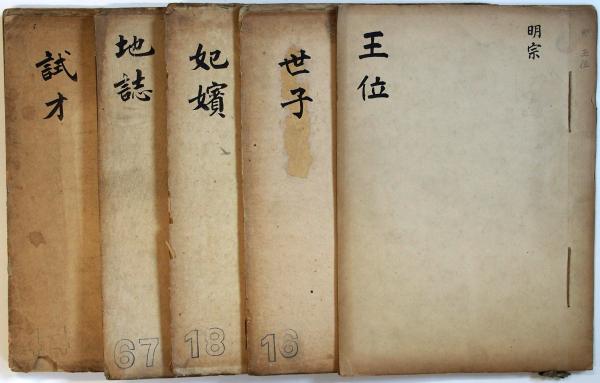 王位
明宗
世子
16
妃嬪
18
地誌
67
試才